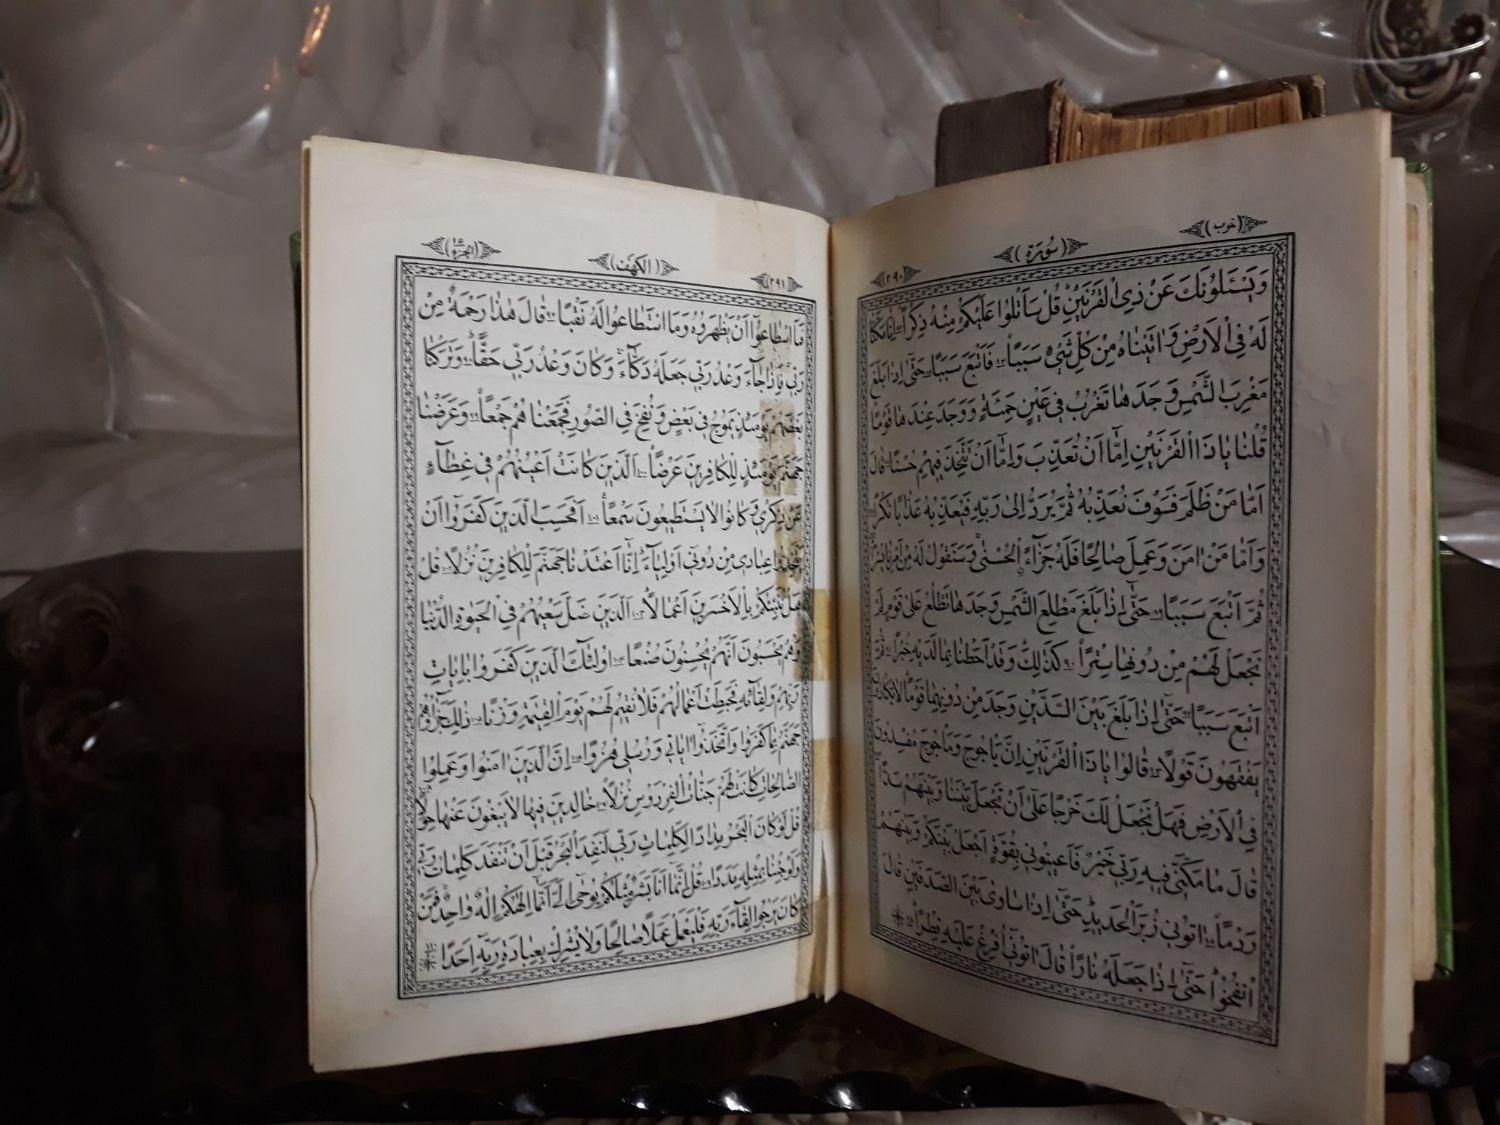 (حزب)
(سُورَة)
(٢٩٠)
وَيَسْئَلُونَكَ عَنْ ذِي الْقَرْنَيْنِ قُلْ سَأَتْلُوا عَلَيْكُمْ مِنْهُ ذِكْراً ٨٣ إِنَّا مَكَّنَّا
لَهُ فِي الْاَرْضِ وَاٰتَيْنَاهُ مِنْ كُلِّ شَيْءٍ سَبَباً ٨٤ فَاَتْبَعَ سَبَبًا ٨٥ حَتّٰى اِذَا بَلَغَ
مَغْرِبَ الشَّمْسِ وَجَدَهَا تَغْرُبُ فِي عَيْنٍ حَمِئَةٍ وَوَجَدَ عِنْدَهَا قَوْمًا
قُلْنَا يَا ذَا الْقَرْنَيْنِ اِمَّا اَنْ تُعَذِّبَ وَاِمَّا اَنْ تَتَّخِذَ فِيهِمْ حُسْنًا ٨٦ قَالَ
اَمَّا مَنْ ظَلَمَ فَسَوْفَ نُعَذِّبُهُ ثُمَّ يُرَدُّ اِلٰى رَبِّهِ فَيُعَذِّبُهُ عَذَابًا نُكْرًا ٨٧
وَاَمَّا مَنْ اٰمَنَ وَعَمِلَ صَالِحًا فَلَهُ جَزَاءً اۨلْحُسْنٰى وَسَنَقُولُ لَهُ مِنْ اَمْرِنَا يُسْرًا ٨٨
ثُمَّ اَتْبَعَ سَبَبًا ٨٩ حَتّٰى اِذَا بَلَغَ مَطْلِعَ الشَّمْسِ وَجَدَهَا تَطْلُعُ عَلٰى قَوْمٍ لَمْ
نَجْعَلْ لَهُمْ مِنْ دُونِهَا سِتْرًا ٩٠ كَذٰلِكَ وَقَدْ اَحَطْنَا بِمَا لَدَيْهِ خُبْرًا ٩١ ثُمَّ
اَتْبَعَ سَبَبًا ٩٢ حَتّٰى اِذَا بَلَغَ بَيْنَ السَّدَّيْنِ وَجَدَ مِنْ دُونِهِمَا قَوْمًا لَا يَكَادُونَ
يَفْقَهُونَ قَوْلًا ٩٣ قَالُوا يَا ذَا الْقَرْنَيْنِ اِنَّ يَأْجُوجَ وَمَأْجُوجَ مُفْسِدُونَ
فِي الْاَرْضِ فَهَلْ نَجْعَلُ لَكَ خَرْجًا عَلٰى اَنْ تَجْعَلَ بَيْنَنَا وَبَيْنَهُمْ سَدًّا ٩٤
قَالَ مَا مَكَّنّٖي فِيهِ رَبِّي خَيْرٌ فَاَعِينُونِي بِقُوَّةٍ اَجْعَلْ بَيْنَكُمْ وَبَيْنَهُمْ
رَدْمًا ٩٥ اٰتُونِي زُبَرَ الْحَدِيدِ حَتّٰى اِذَا سَاوٰى بَيْنَ الصَّدَفَيْنِ قَالَ
انْفُخُوا حَتّٰى اِذَا جَعَلَهُ نَارًا قَالَ اٰتُونِي اُفْرِغْ عَلَيْهِ قِطْرًا ٩٦
(٢٩١)
(الكهف)
(الجزء ١٦)
فَمَا اسْطَاعُوا اَنْ يَظْهَرُوهُ وَمَا اسْتَطَاعُوا لَهُ نَقْبًا ٩٧ قَالَ هٰذَا رَحْمَةٌ مِنْ
رَبِّي فَاِذَا جَاءَ وَعْدُ رَبِّي جَعَلَهُ دَكَّاءَ وَكَانَ وَعْدُ رَبِّي حَقًّا ٩٨ وَتَرَكْنَا
بَعْضَهُمْ يَوْمَئِذٍ يَمُوجُ فِي بَعْضٍ وَنُفِخَ فِي الصُّورِ فَجَمَعْنَاهُمْ جَمْعًا ٩٩ وَعَرَضْنَا
جَهَنَّمَ يَوْمَئِذٍ لِلْكَافِرِينَ عَرْضًا ١٠٠ اَلَّذِينَ كَانَتْ اَعْيُنُهُمْ فِي غِطَاءٍ
عَنْ ذِكْرِي وَكَانُوا لَا يَسْتَطِيعُونَ سَمْعًا ١٠١ اَفَحَسِبَ الَّذِينَ كَفَرُوا اَنْ
يَتَّخِذُوا عِبَادِي مِنْ دُونِي اَوْلِيَاءَ اِنَّا اَعْتَدْنَا جَهَنَّمَ لِلْكَافِرِينَ نُزُلًا ١٠٢ قُلْ
هَلْ نُنَبِّئُكُمْ بِالْاَخْسَرِينَ اَعْمَالًا ١٠٣ اَلَّذِينَ ضَلَّ سَعْيُهُمْ فِي الْحَيٰوةِ الدُّنْيَا
وَهُمْ يَحْسَبُونَ اَنَّهُمْ يُحْسِنُونَ صُنْعًا ١٠٤ اُولٰئِكَ الَّذِينَ كَفَرُوا بِاٰيَاتِ
رَبِّهِمْ وَلِقَائِهِ فَحَبِطَتْ اَعْمَالُهُمْ فَلَا نُقِيمُ لَهُمْ يَوْمَ الْقِيٰمَةِ وَزْنًا ١٠٥ ذٰلِكَ جَزَاؤُهُمْ
جَهَنَّمُ بِمَا كَفَرُوا وَاتَّخَذُوا اٰيَاتِي وَرُسُلِي هُزُوًا ١٠٦ اِنَّ الَّذِينَ اٰمَنُوا وَعَمِلُوا
الصَّالِحَاتِ كَانَتْ لَهُمْ جَنَّاتُ الْفِرْدَوْسِ نُزُلًا ١٠٧ خَالِدِينَ فِيهَا لَا يَبْغُونَ عَنْهَا حِوَلًا ١٠٨
قُلْ لَوْ كَانَ الْبَحْرُ مِدَادًا لِكَلِمَاتِ رَبِّي لَنَفِدَ الْبَحْرُ قَبْلَ اَنْ تَنْفَدَ كَلِمَاتُ رَبِّي
وَلَوْ جِئْنَا بِمِثْلِهِ مَدَدًا ١٠٩ قُلْ اِنَّمَا اَنَا بَشَرٌ مِثْلُكُمْ يُوحٰى اِلَيَّ اَنَّمَا اِلٰهُكُمْ اِلٰهٌ وَاحِدٌ فَمَنْ
كَانَ يَرْجُوا لِقَاءَ رَبِّهِ فَلْيَعْمَلْ عَمَلًا صَالِحًا وَلَا يُشْرِكْ بِعِبَادَةِ رَبِّهِ اَحَدًا ١١٠